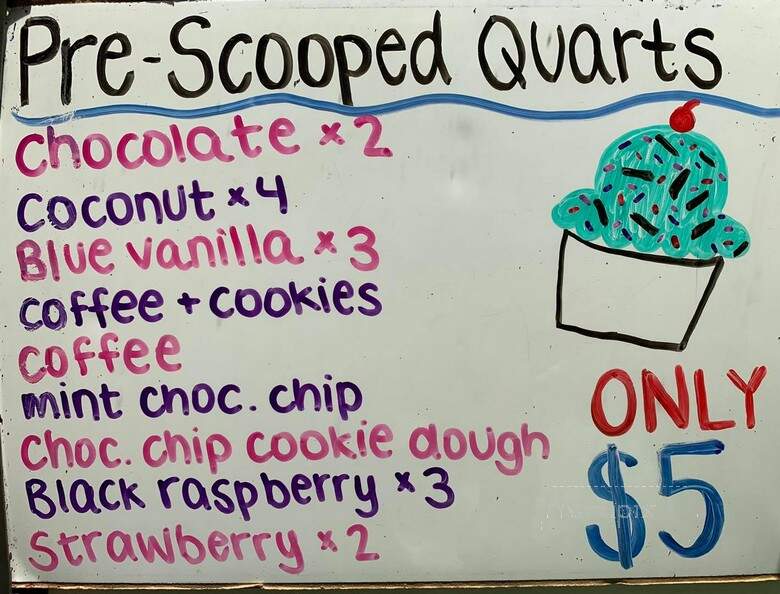 Pre-Scooped Quarts
chocolate x 2
coconut x 4
Blue vanilla x 3
coffee + cookies
coffee
mint choc. chip
Choc. chip cookie dough
Black raspberry x 3
Strawberry x 2
ONLY
$5